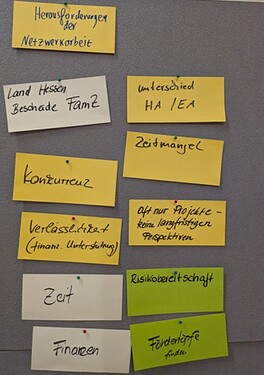 Herausforderungen
der
Netzwerkarbeit
Land Hessen
Bescheide FamZ
Unterschied
HA / EA
Zeitmangel
Konkurrenz
Verlässlichkeit
(finanz. Unterstützung)
Oft nur Projekte -
keine langfristigen
Perspektiven
Zeit
Risikobereitschaft
Finanzen
Fördertöpfe
finden